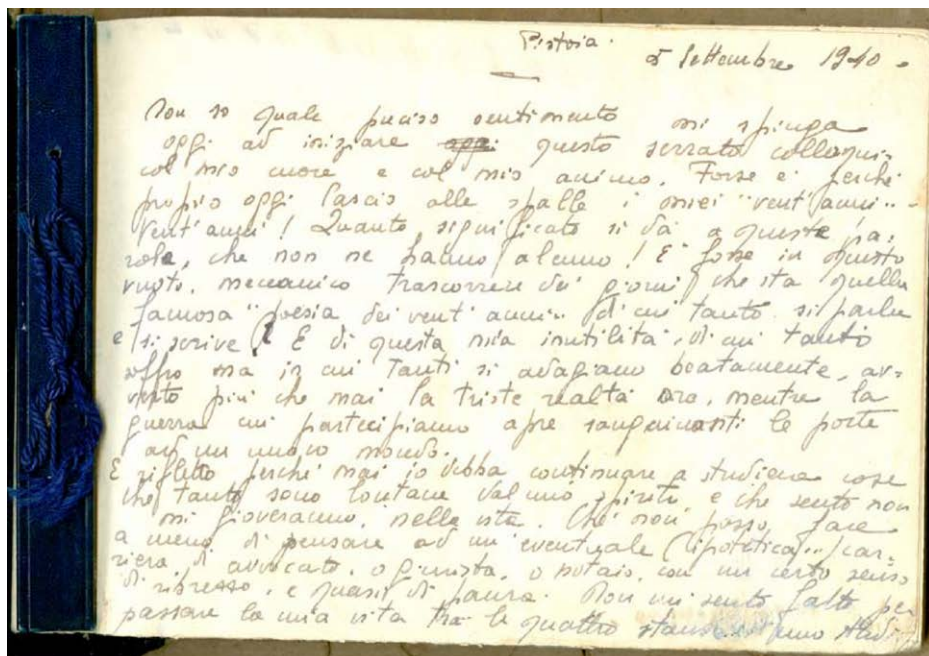 Pistoia.
5 Settembre 1940.
Non so quale preciso sentimento mi spinga
oggi ad iniziare oggi questo serrato colloqui-
col mio cuore e col mio animo. Forse è perché
proprio oggi lascio alle spalle i miei "vent'anni"..
Vent'anni! Quanto significato si dà a queste pa=
role, che non ne hanno alcuno! E forse in questo
vuoto, meccanico trascorrere dei giorni che sta quella
famosa "poesia dei vent'anni" di cui tanto si parla
e si scrive! E di questa mia inutilità, di cui tanto
soffro ma in cui tanti si adagiano beatamente, av=
verto più che mai la triste realtà ora, mentre la
guerra cui partecipiamo apre sanguinanti le porte
ad un nuovo mondo.
E rifletto perché mai io debba continuare a studiare cose
che tanto sono lontane dal mio spirito e che sento non
mi gioveranno, nella vita. Ché non posso fare
a meno di pensare ad un'eventuale (ipotetica..) car=
riera di avvocato, o giurista, o notaio, con un certo senso
di ribrezzo, e quasi di paura. Non mi sento fatto per
passare la mia vita tra le quattro stanze uno studi